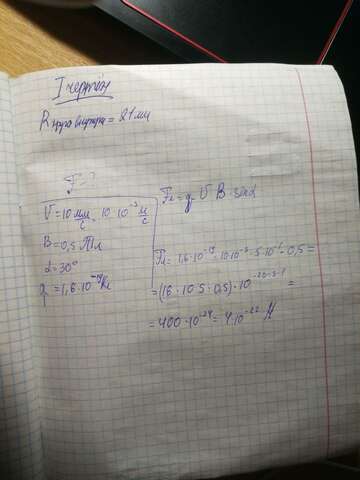 I чертёж
R круга внутри = 21 мм
F-?
V = 10 мм/с = 10·10⁻³ м/с
B = 0,5 Тл
α = 30°
q = 1,6·10⁻¹⁹ Кл
Fл = q V B sinα
Fл = 1,6·10⁻¹⁹·10·10⁻³·5·10⁻¹·0,5 =
= (16·10·5·0,5)·10⁻²⁰⁻³⁻¹ =
= 400·10⁻²⁴ = 4·10⁻²² Н